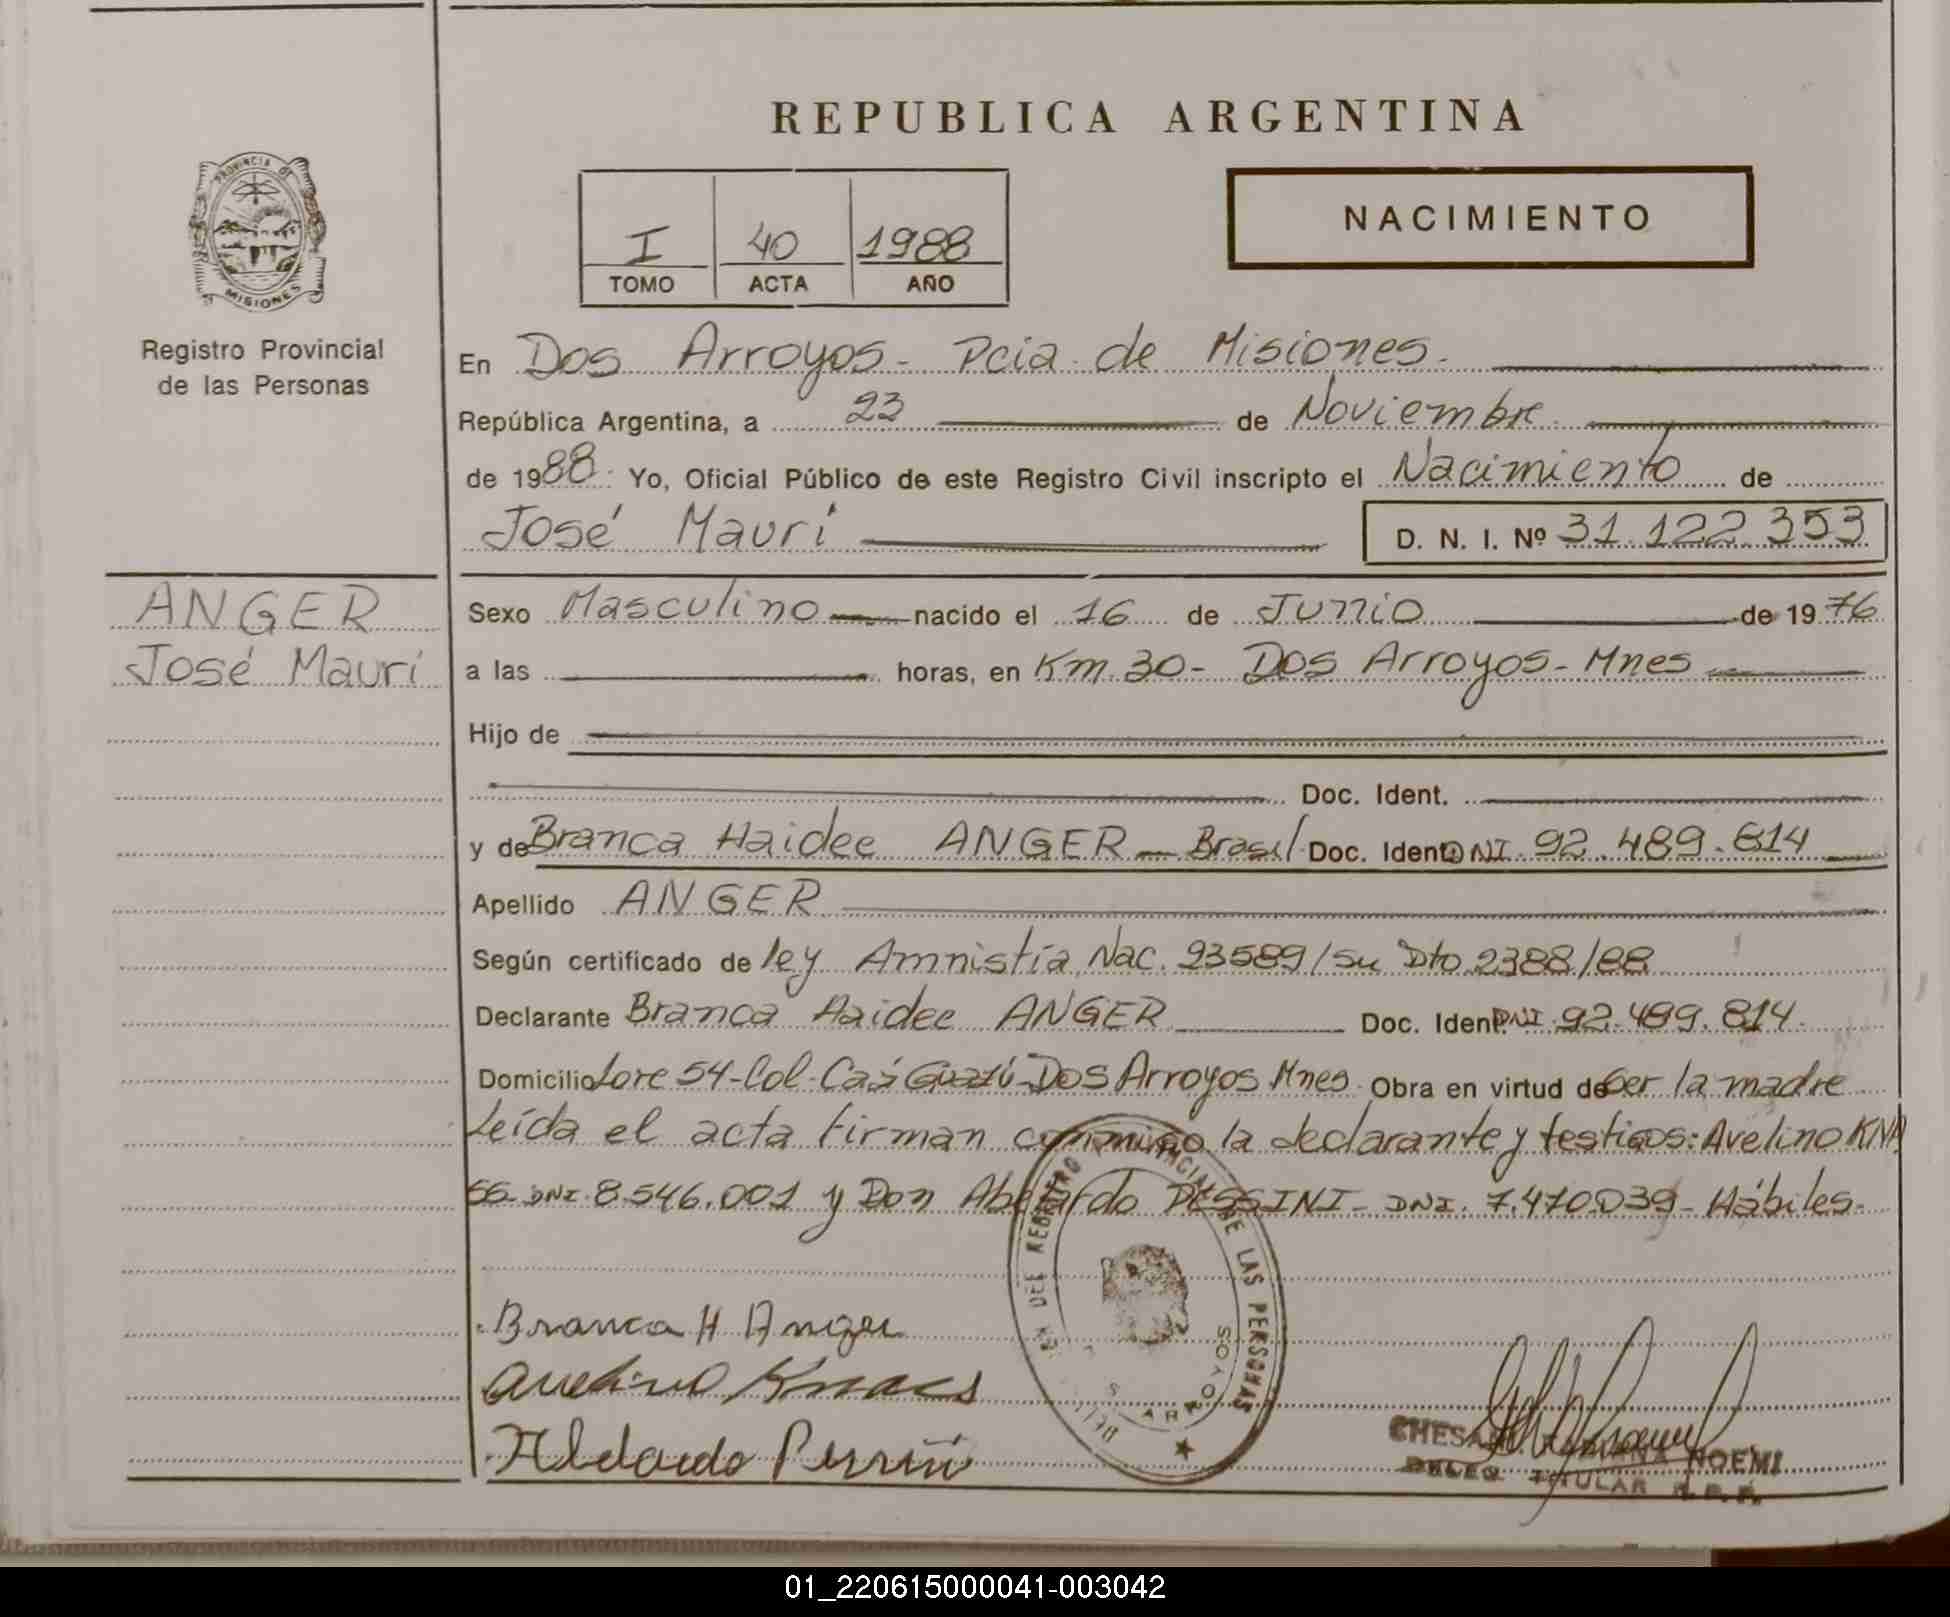 REPUBLICA ARGENTINA
PROVINCIA DE
MISIONES
Registro Provincial
de las Personas
I 40 1988
TOMO ACTA AÑO
NACIMIENTO
En Dos Arroyos - Pcia. de Misiones.
República Argentina, a 23 de Noviembre
de 1988. Yo, Oficial Público de este Registro Civil inscripto el Nacimiento de
José Mauri D. N. I. Nº 31.122.353
ANGER
José Mauri
Sexo Masculino nacido el 16 de Junio de 1976
a las horas, en Km. 30 - Dos Arroyos - Mnes
Hijo de
Doc. Ident.
y de Branca Haidee ANGER - Brasil Doc. Ident. DNI. 92.489.814
Apellido ANGER
Según certificado de ley Amnistía Nac. 23589/su Dto 2388/88
Declarante Branca Haidee ANGER Doc. Ident. DNI. 92.489.814.
Domicilio Lote 54 - Col. Caá Guazú - Dos Arroyos Mnes. Obra en virtud de ser la madre
Leída el acta firman conmigo la declarante y testigos: Avelino KNA
SS DNI. 8.546.001 y Don Abelardo PESSINI - DNI. 7.470.039 - Hábiles.
DEL REGISTRO PROVINCIAL DE LAS PERSONAS
ARROYOS
Branca H Anger
Avelino Knaas
NOEMI
DELEG. TITULAR R. P. P.
01_220615000041-003042